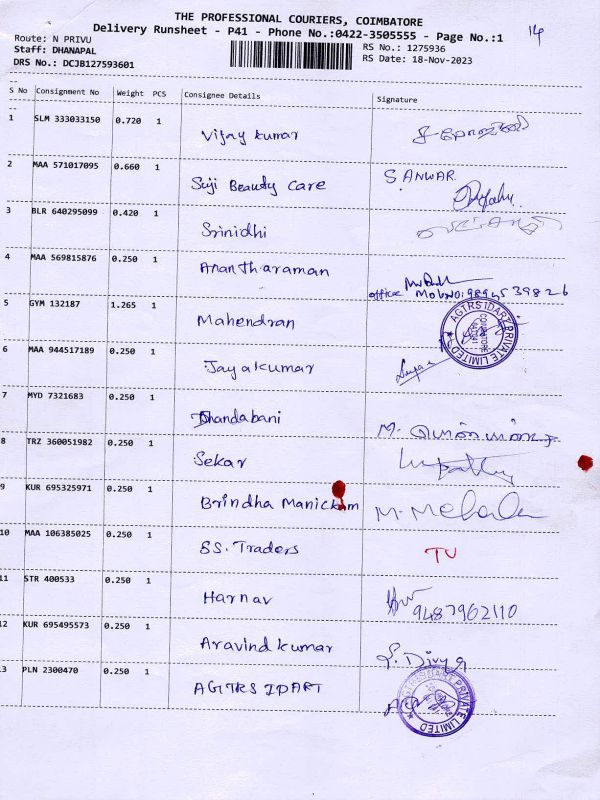 THE PROFESSIONAL COURIERS, COIMBATORE
14
Delivery Runsheet - P41 - Phone No.:0422-3505555 - Page No.:1
Route: N PRIVU
Staff: DHANAPAL
DRS No.: DCJB127593601
RS No.: 1275936
RS Date: 18-Nov-2023
S No Consignment No Weight PCS Consignee Details Signature
1 SLM 333033150 0.720 1 Vijay kumar
2 MAA 571017095 0.660 1 Suji Beauty Care S. ANWAR
3 BLR 640295099 0.420 1 Srinidhi
4 MAA 569815876 0.250 1 Anantharaman
office Mob NO: 9894539826
5 GYM 132187 1.265 1 Mahendran
AGTRSIDART PRIVATE LIMITED
6 MAA 944517189 0.250 1 Jayakumar
7 MYD 7321683 0.250 1 Dhandabani
8 TRZ 360051982 0.250 1 Sekar
9 KUR 695325971 0.250 1 Brindha Manickam M. Mebala
10 MAA 106385025 0.250 1 SS. Traders TU
11 STR 400533 0.250 1 Harnav 9487962110
12 KUR 695495573 0.250 1 Aravind kumar S. Divya
13 PLN 2300470 0.250 1 AGTRS IDART
AGTRSIDART PRIVATE LIMITED